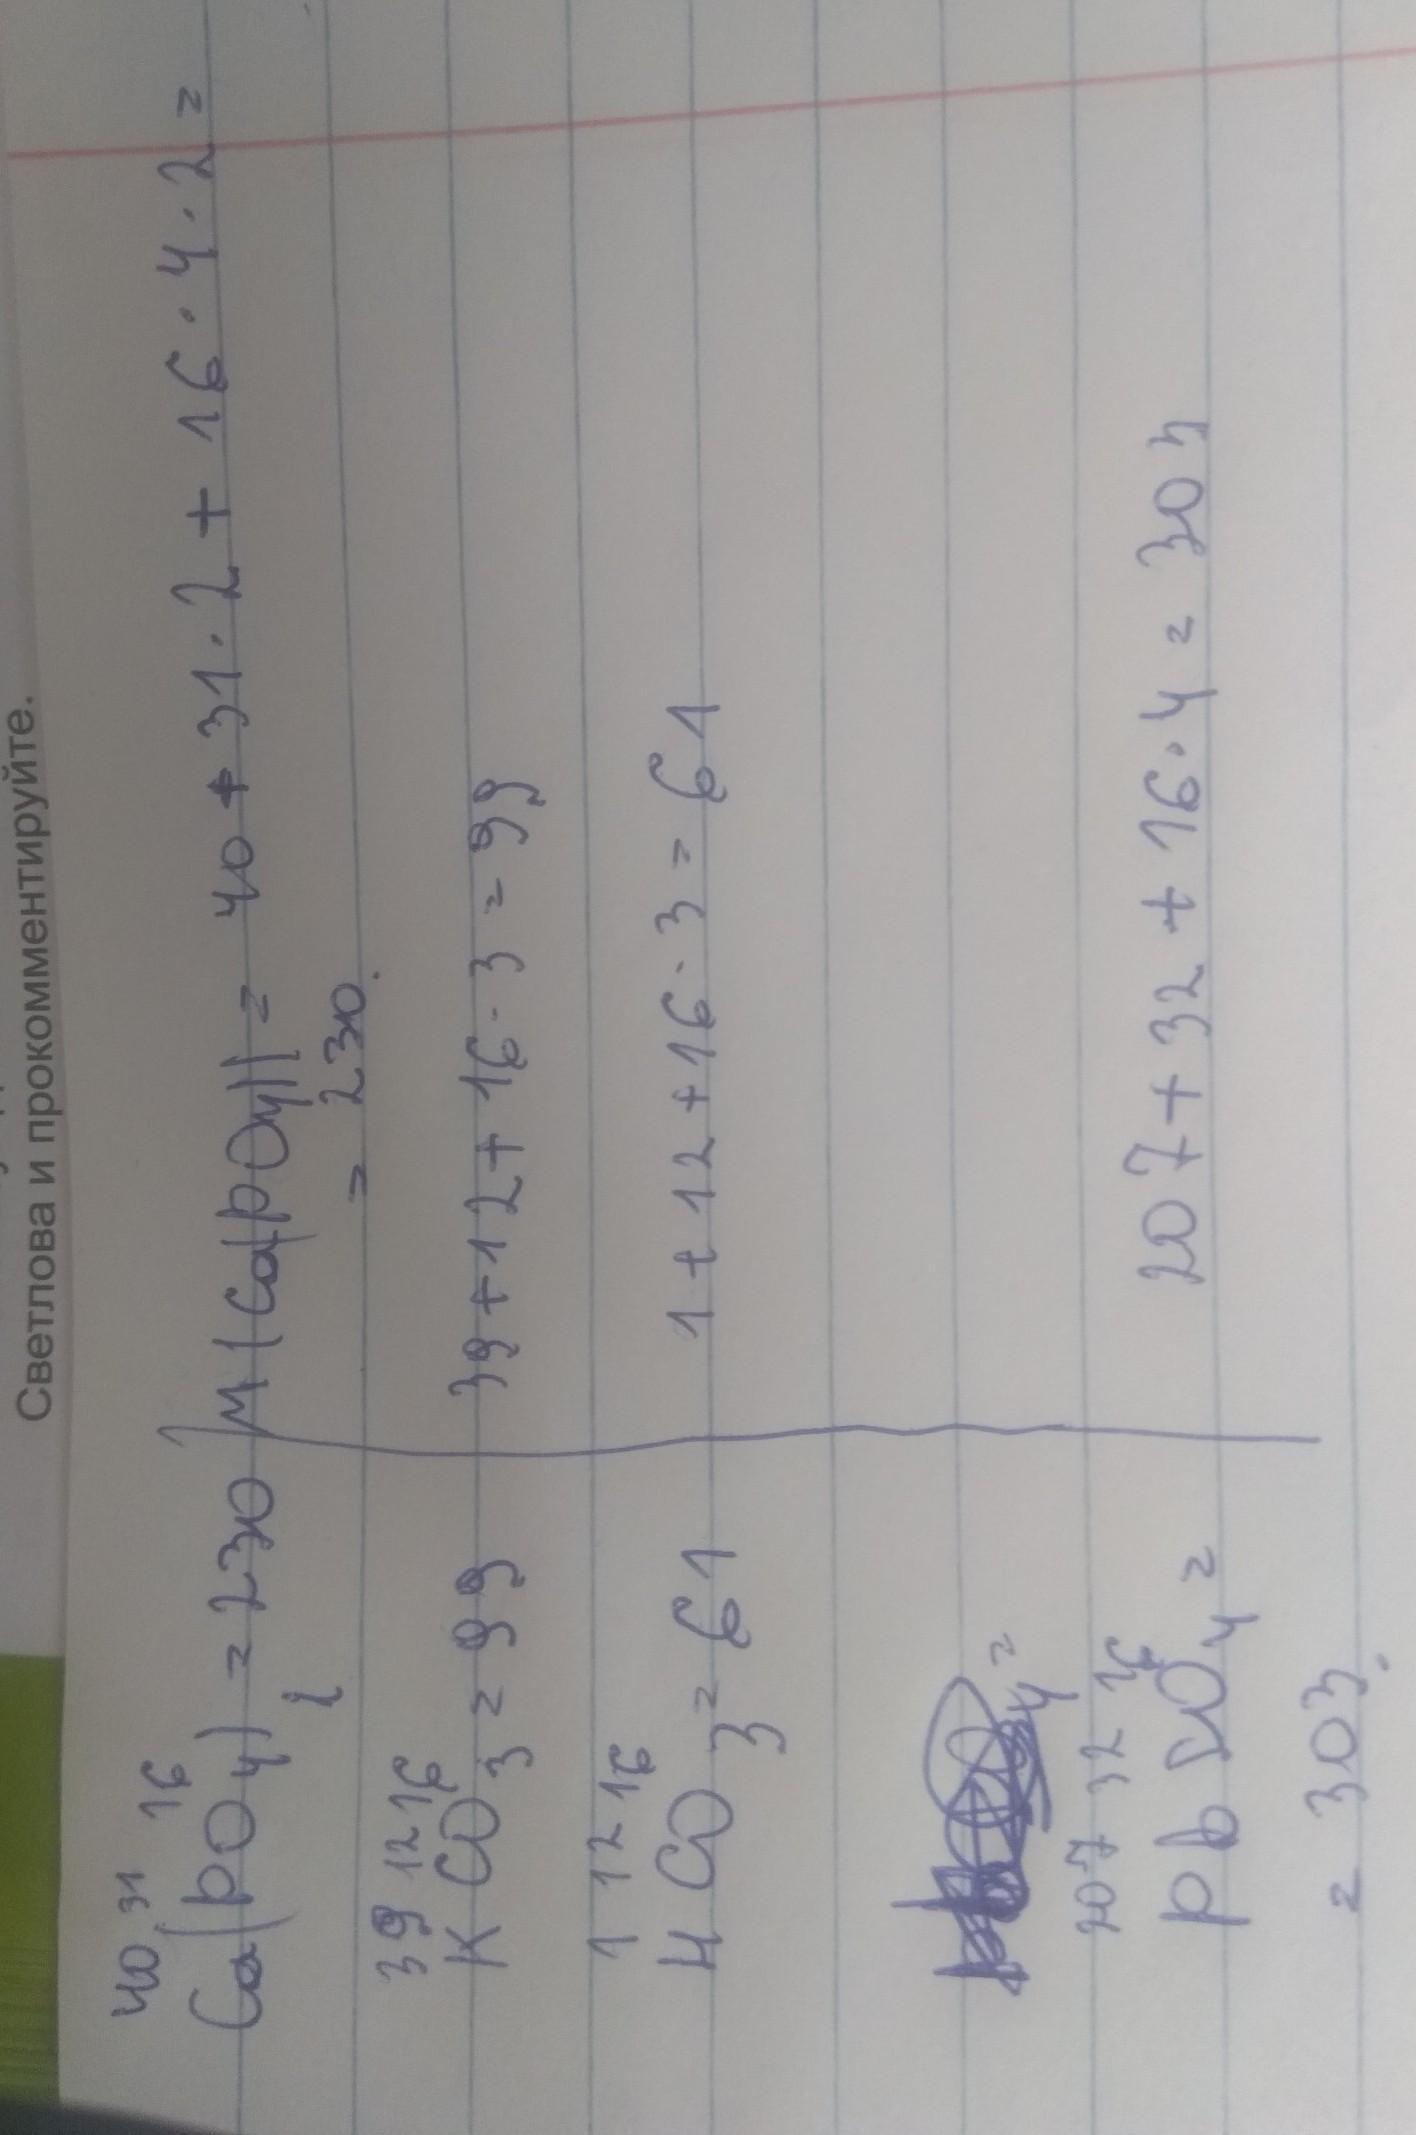 Светлова и прокомментируйте.
40 31 16
Ca(PO4)2 = 230 M(Ca(PO4)) = 40 + 31 · 2 + 16 · 4 · 2 =
= 230.
39 12 16
KCO3 = 99 39 + 12 + 16 · 3 = 99
1 12 16
HCO3 = 61 1 + 12 + 16 · 3 = 61
4 =
207 32 16
PbSO4 = 207 + 32 + 16 · 4 = 303
= 303.